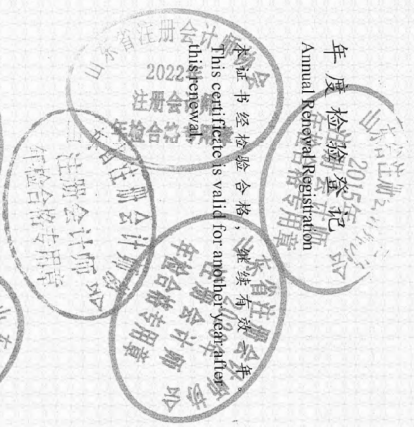 年度检验登记
Annual Renewal Registration
本证书经检验合格，继续有效一年。
This certificate is valid for another year after
this renewal.
山东省注册会计师协会
2022年
注册会计师
年检合格专用章
2015年
师
年检合格专用章
山东省注册会计师协会
注册会计师
年检合格专用章
山东省注册会计师协会
年检合格专用章
山东